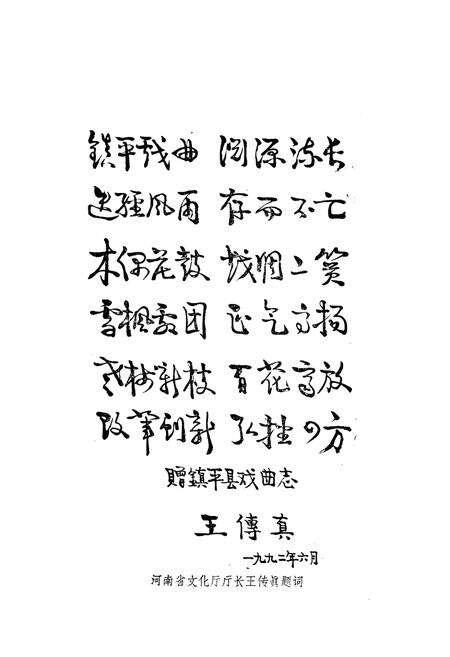 鎮平戏曲 渊源流长
迭经风雨 存而不亡
木偶花鼓 越调二簧
雪枫剧团 正气高扬
老树新枝 百花齐放
改革创新 弘扬四方
贈鎮平县戏曲志
王傳真
一九九二年六月
河南省文化厅厅长王传真题词